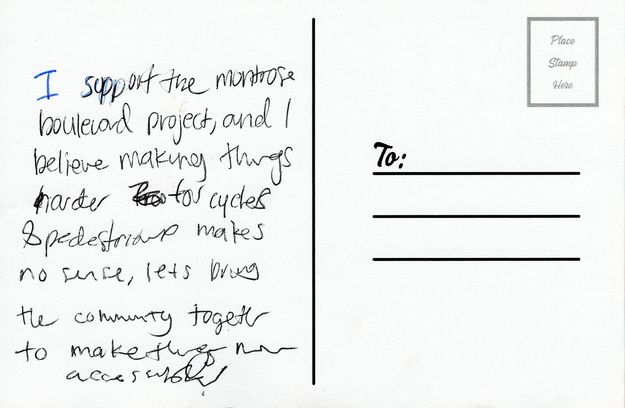 I support the montrose
boulevard project, and I
believe making things
harder for cycles
& pedestrians makes
no sense, lets bring
the community together
to make things more
accessible
Place
Stamp
Here
To: